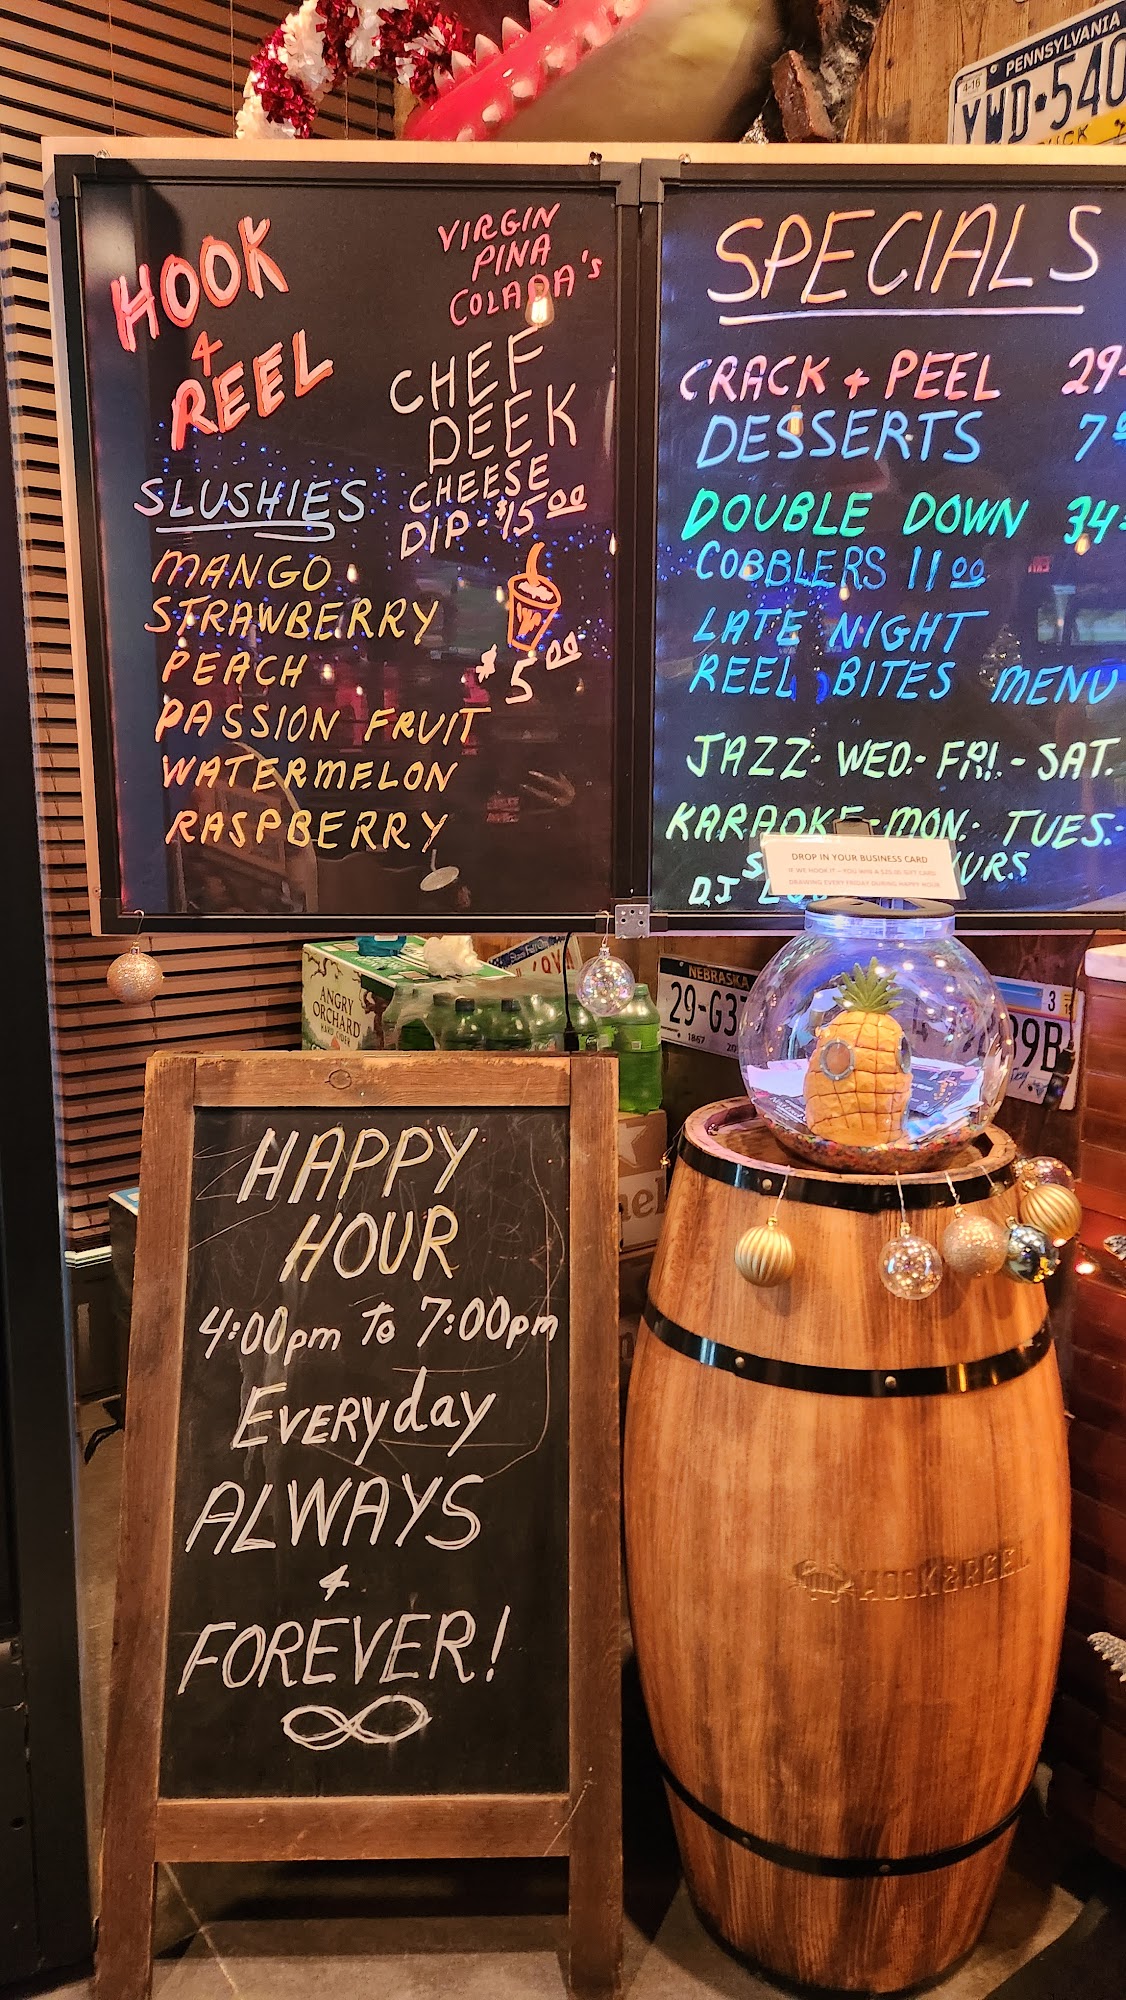 PENNSYLVANIA
4-16
YWD-540
HOOK
&
REEL
VIRGIN
PINA
COLADA's
CHEF
DEEK
CHEESE
DIP-$15.00
SLUSHIES
MANGO
STRAWBERRY
PEACH
PASSION FRUIT
WATERMELON
RASPBERRY
$5.00
SPECIALS
CRACK + PEEL 29
DESSERTS 7
DOUBLE DOWN 34
COBBLERS 11.00
LATE NIGHT
REEL BITES MENU
JAZZ- WED.- FRI.- SAT.
KARAOKE-MON.- TUES.-
DJ
DROP IN YOUR BUSINESS CARD
IF WE HOOK IT - YOU WIN A $25.00 GIFT CARD
DRAWING EVERY FRIDAY DURING HAPPY HOUR
ANGRY
ORCHARD
HARD CIDER
NEBRASKA
29-G3
1867
99B
HAPPY
HOUR
4:00pm To 7:00pm
Everyday
ALWAYS
&
FOREVER!
HOOK&REEL